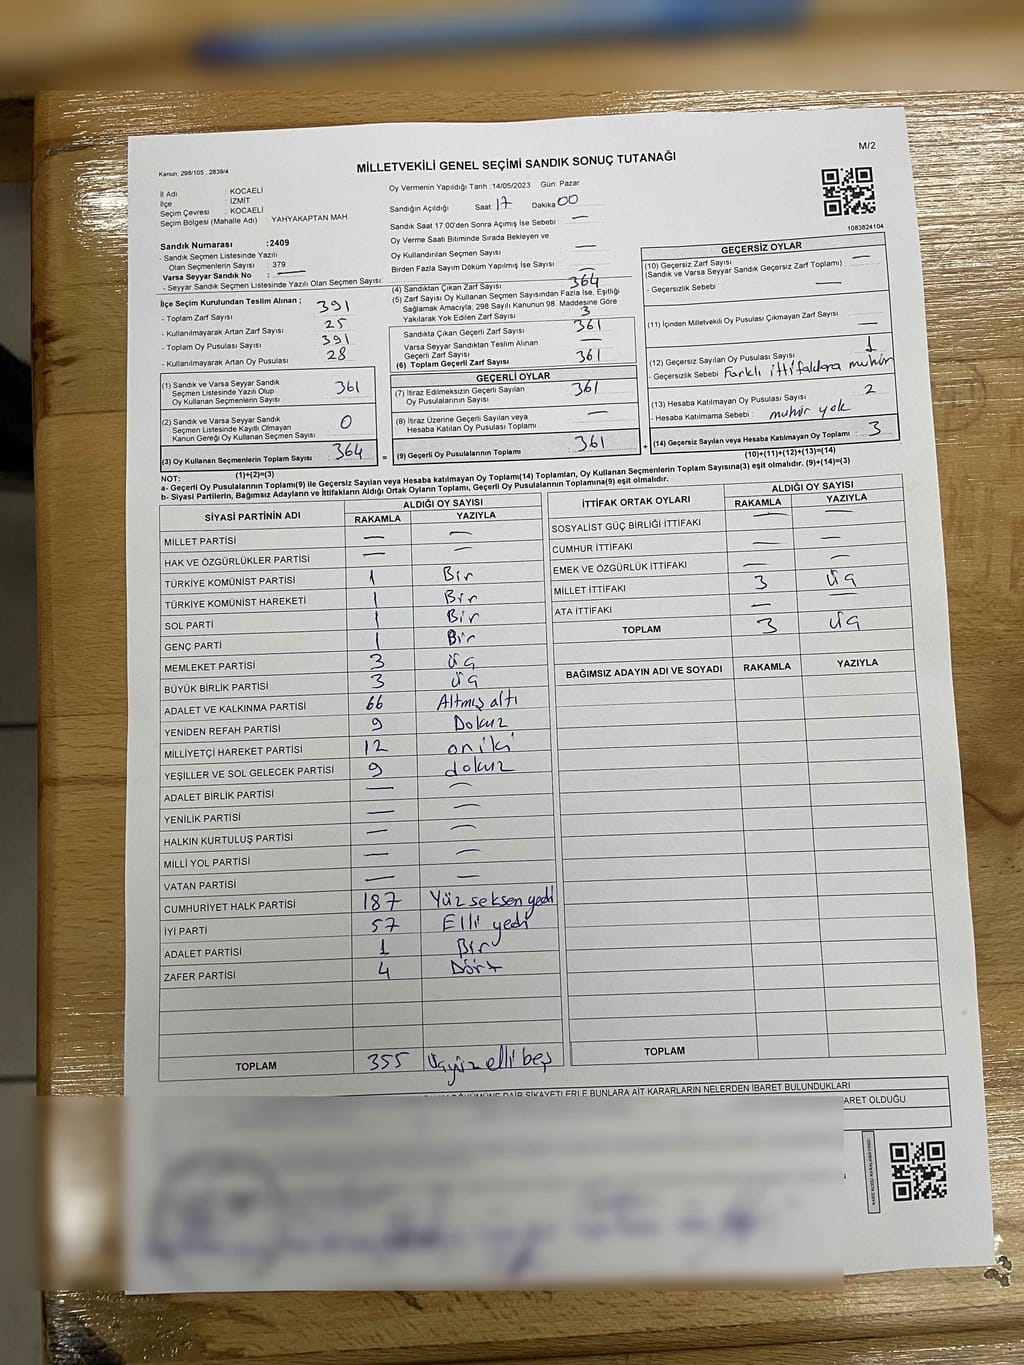 M/2
Kanun: 298/105 , 2839/4
MİLLETVEKİLİ GENEL SEÇİMİ SANDIK SONUÇ TUTANAĞI
İl Adı : KOCAELİ
İlçe : İZMİT
Seçim Çevresi : KOCAELİ
Seçim Bölgesi (Mahalle Adı) : YAHYAKAPTAN MAH.
Sandık Numarası :2409
- Sandık Seçmen Listesinde Yazılı
Olan Seçmenlerin Sayısı : 379
Varsa Seyyar Sandık No : —
- Seyyar Sandık Listesinde Yazılı Olan Seçmen Sayısı:
Oy Vermenin Yapıldığı Tarih :14/05/2023 Gün: Pazar
Sandığın Açıldığı Saat: 17 Dakika: 00
Sandık Saat 17.00'den Sonra Açımış İse Sebebi : —
Oy Verme Saati Bitiminde Sırada Bekleyen ve
Oy Kullandırılan Seçmen Sayısı —
Birden Fazla Sayım Döküm Yapılmış İse Sayısı —
1083824104
İlçe Seçim Kurulundan Teslim Alınan ;
- Toplam Zarf Sayısı 391
- Kullanılmayarak Artan Zarf Sayısı 25
- Toplam Oy Pusulası Sayısı 391
- Kullanılmayarak Artan Oy Pusulası 28
(1) Sandık ve Varsa Seyyar Sandık
Seçmen Listesinde Yazılı Olup
Oy Kullanan Seçmenlerin Sayısı 361
(2) Sandık ve Varsa Seyyar Sandık
Seçmen Listesinde Kayıtlı Olmayan
Kanun Gereği Oy Kullanan Seçmen Sayısı 0
(3) Oy Kullanan Seçmenlerin Toplam Sayısı 364
(1)+(2)=(3)
(4) Sandıktan Çıkan Zarf Sayısı 364
(5) Zarf Sayısı Oy Kullanan Seçmen Sayısından Fazla İse, Eşitliği
Sağlamak Amacıyla; 298 Sayılı Kanunun 98. Maddesine Göre
Yakılarak Yok Edilen Zarf Sayısı 3
Sandıkta Çıkan Geçerli Zarf Sayısı 361
Varsa Seyyar Sandıktan Teslim Alınan
Geçerli Zarf Sayısı —
(6) Toplam Geçerli Zarf Sayısı 361
GEÇERLİ OYLAR
(7) İtiraz Edilmeksizin Geçerli Sayılan
Oy Pusulalarının Sayısı 361
(8) İtiraz Üzerine Geçerli Sayılan veya
Hesaba Katılan Oy Pusulası Toplamı —
= (9) Geçerli Oy Pusulalarının Toplamı 361
GEÇERSİZ OYLAR
(10) Geçersiz Zarf Sayısı —
(Sandık ve Varsa Seyyar Sandık Geçersiz Zarf Toplamı) :
- Geçersizlik Sebebi : —
(11) İçinden Milletvekili Oy Pusulası Çıkmayan Zarf Sayısı —
(12) Geçersiz Sayılan Oy Pusulası Sayısı 1
- Geçersizlik Sebebi Farklı ittifaklara mühür
(13) Hesaba Katılmayan Oy Pusulası Sayısı 2
- Hesaba Katılmama Sebebi : mühür yok
+ (14) Geçersiz Sayılan veya Hesaba Katılmayan Oy Toplamı : 3
(10)+(11)+(12)+(13)=(14)
NOT:
a- Geçerli Oy Pusulalarının Toplamı(9) ile Geçersiz Sayılan veya Hesaba katılmayan Oy Toplamı(14) Toplamları, Oy Kullanan Seçmenlerin Toplam Sayısına(3) eşit olmalıdır. (9)+(14)=(3)
b- Siyasi Partilerin, Bağımsız Adayların ve İttifakların Aldığı Oyların Toplamı, Geçerli Oy Pusulalarının Toplamına(9) eşit olmalıdır.
SİYASİ PARTİNİN ADI ALDIĞI OY SAYISI
RAKAMLA YAZIYLA
MİLLET PARTİSİ — —
HAK VE ÖZGÜRLÜKLER PARTİSİ — —
TÜRKİYE KOMÜNİST PARTİSİ 1 Bir
TÜRKİYE KOMÜNİST HAREKETİ 1 Bir
SOL PARTİ 1 Bir
GENÇ PARTİ 1 Bir
MEMLEKET PARTİSİ 3 Üç
BÜYÜK BİRLİK PARTİSİ 3 Üç
ADALET VE KALKINMA PARTİSİ 66 Altmış altı
YENİDEN REFAH PARTİSİ 9 Dokuz
MİLLİYETÇİ HAREKET PARTİSİ 12 oniki
YEŞİLLER VE SOL GELECEK PARTİSİ 9 dokuz
ADALET BİRLİK PARTİSİ — —
YENİLİK PARTİSİ — —
HALKIN KURTULUŞ PARTİSİ — —
MİLLİ YOL PARTİSİ — —
VATAN PARTİSİ — —
CUMHURİYET HALK PARTİSİ 187 Yüz seksen yedi
İYİ PARTİ 57 Elli yedi
ADALET PARTİSİ 1 Bir
ZAFER PARTİSİ 4 Dört
TOPLAM 355 Üçyüz elli beş
İTTİFAK ORTAK OYLARI ALDIĞI OY SAYISI
RAKAMLA YAZIYLA
SOSYALİST GÜÇ BİRLİĞİ İTTİFAKI — —
CUMHUR İTTİFAKI — —
EMEK VE ÖZGÜRLÜK İTTİFAKI — —
MİLLET İTTİFAKI 3 Üç
ATA İTTİFAKI — —
TOPLAM 3 Üç
BAĞIMSIZ ADAYIN ADI VE SOYADI RAKAMLA YAZIYLA
TOPLAM
DAİR ŞİKAYETLERLE BUNLARA AİT KARARLARIN NELERDEN İBARET BULUNDUKLARI
ARET OLDUĞU